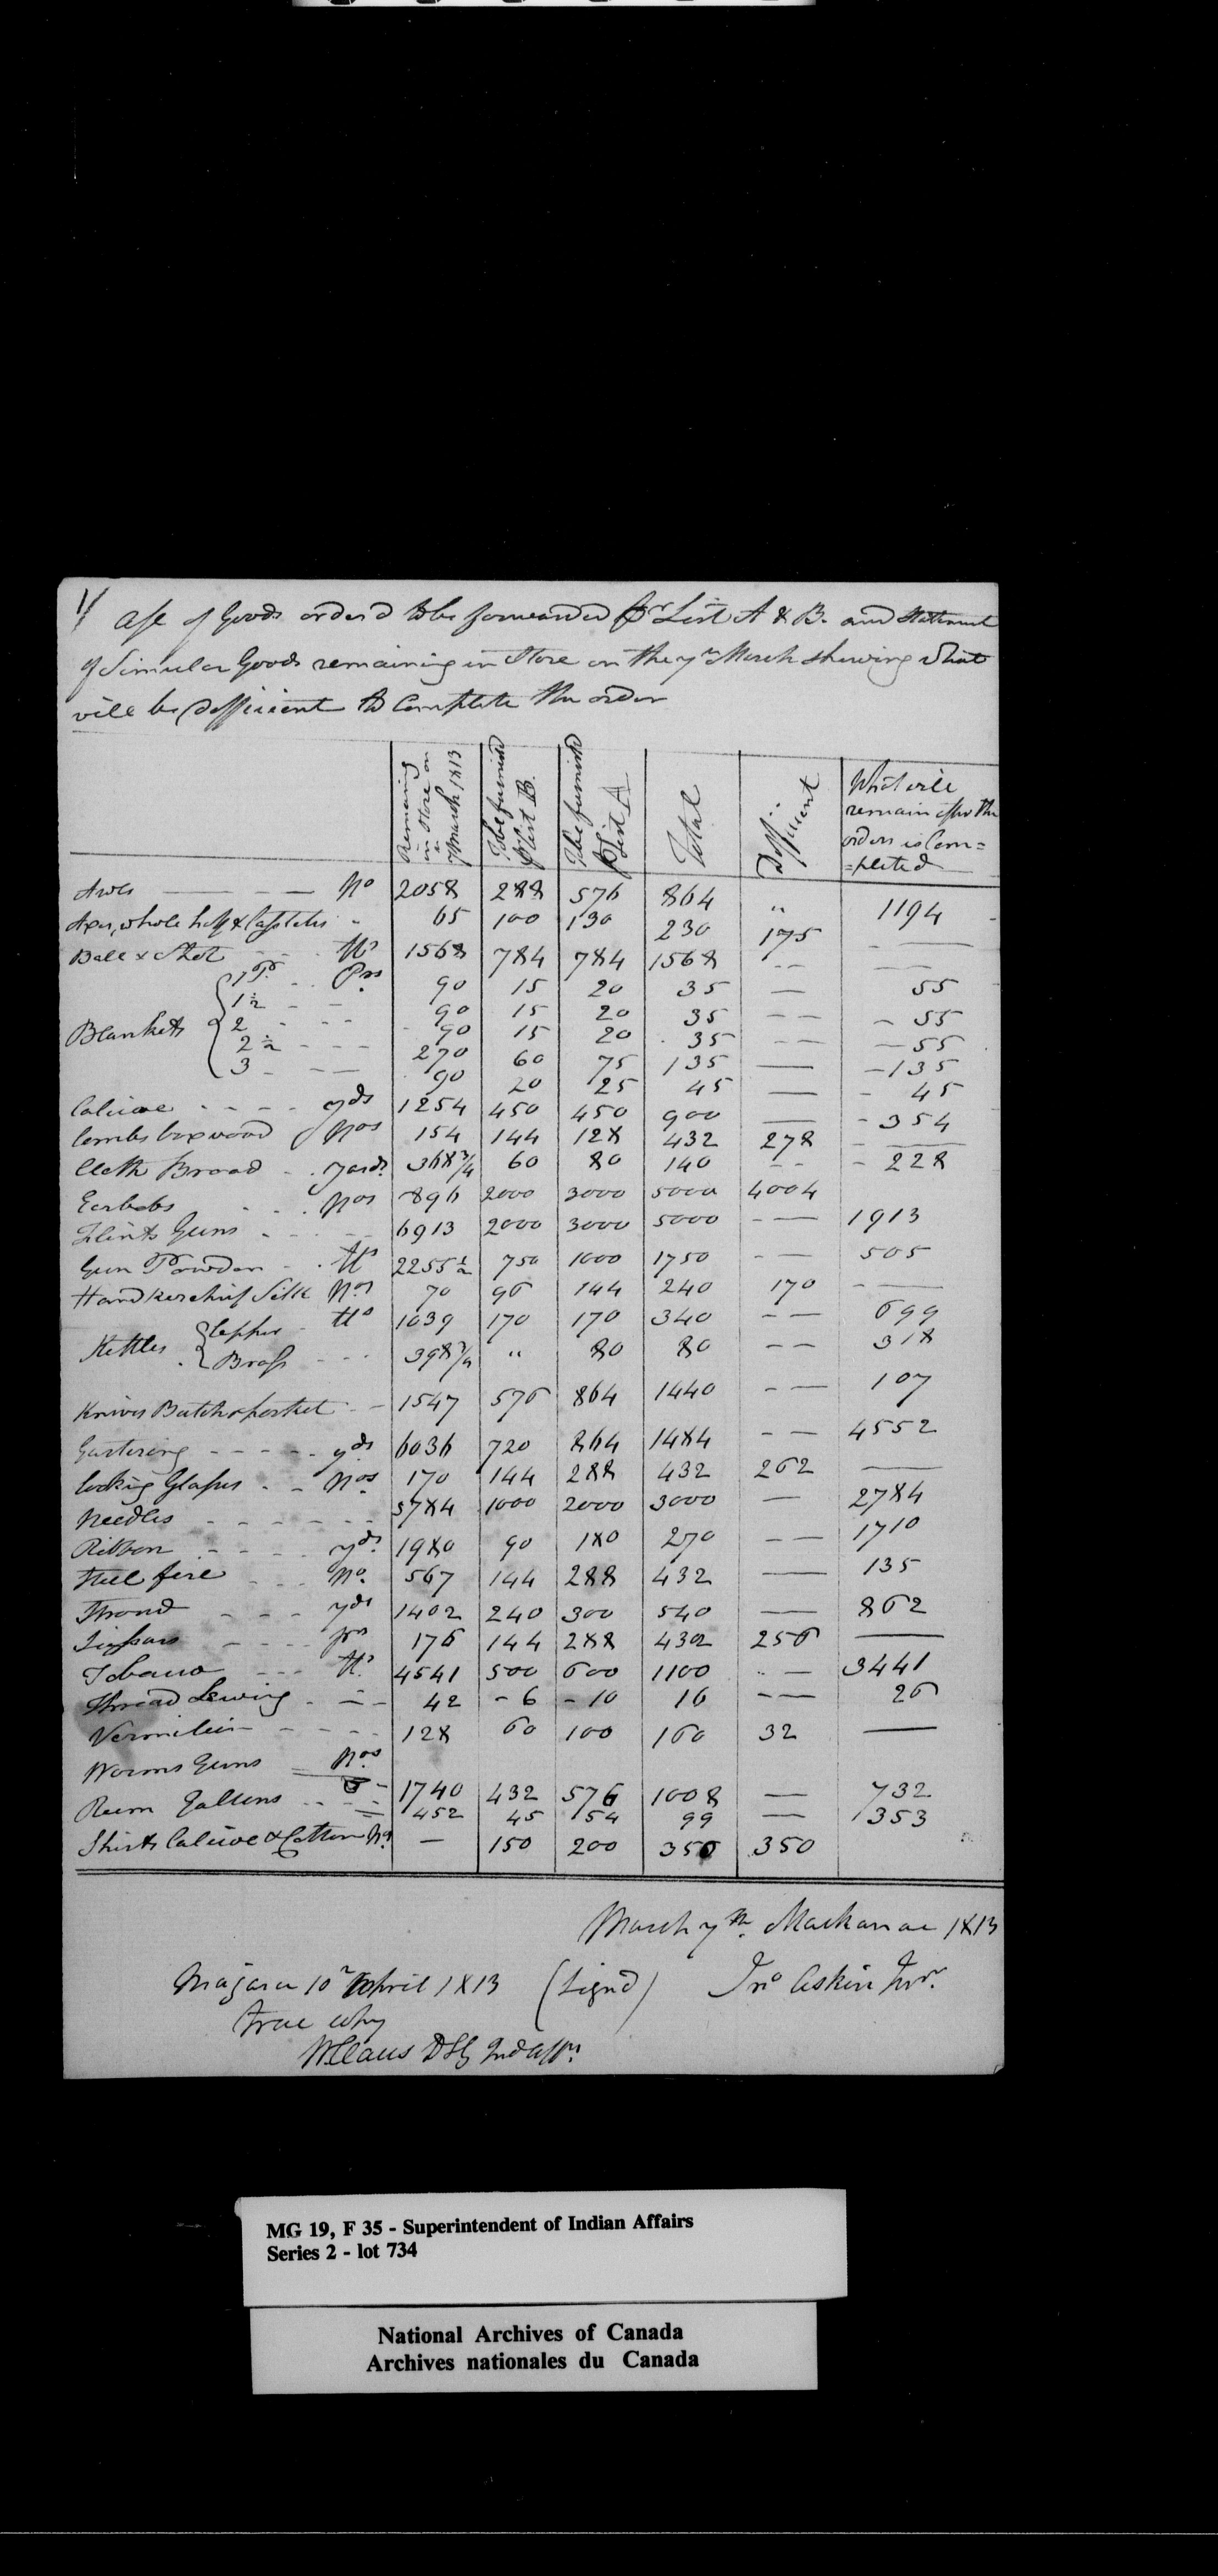 of Goods order'd to be forwarded pr List A & B. and Statement
of Simular Goods remaining in Store on the 7th March shewing what
will be Defficient to Complete the order
Remaining in Store on 7 March 1813 | To be furnished pr List B. | To be furnished pr List A | Total | Defficient | What will remain after the orders is Com=pleted
Awls — — — No 2058 288 576 864 " 1194
Axes, whole half & " 65 100 130 230 175 —
Ball & Shot lbs 1568 784 784 1568 - - —
Blankets { 1 Pt Prs 90 15 20 35 — 55
1½ - - 90 15 20 35 - - 55
2 - - - 90 15 20 35 - - 55
2½ - - - 270 60 75 135 — 135
3 - - - 90 20 25 45 — 45
Calicoe - - - yds 1254 450 450 900 — 354
Combs boxwood Nos 154 144 128 432 278 —
Cloth Broad - yards 368¾ 60 80 140 - - 228
Earbobs - - Nos 896 2000 3000 5000 4004
Flints Guns - - - 6913 2000 3000 5000 - — 1913
Gun Powder - lbs 2255½ 750 1000 1750 - — 505
Handkerchief Silk Nos 70 96 144 240 170 —
Kettles { Copper - lbs 1039 170 170 340 - - 699
Brass - - - 398¾ " 80 80 - - 318
Knives Butch & pocket - - 1547 576 864 1440 - - 107
Gartering - - - - yds 6036 720 864 1484 - - 4552
looking Glasses - - Nos 170 144 288 432 262 —
Needles - - - - - 5784 1000 2000 3000 — 2784
Ribbon - - - yds 1980 90 180 270 — 1710
Steel fire - - No. 567 144 288 432 — 135
Stroud - - - yds 1402 240 300 540 — 862
Scissars - - - prs 176 144 288 432 256 —
Tobacco - - - lbs 4541 500 600 1100 - — 3441
Thread Sewing - - - 42 - 6 - 10 16 - — 26
Vermilion - - - - 128 60 100 160 32 —
Worms Guns Nos 1740 432 576 1008 — 732
Rum Gallons - - - 452 45 54 99 — 353
Shirts Calicoe & Cotton No — 150 200 350 350
March 7th. Mackanac 1813
Niagara 10th April 1813 (Signd) Jno Askin Junr.
true Copy
W Claus D S G Ind Affrs
MG 19, F 35 - Superintendent of Indian Affairs
Series 2 - lot 734
National Archives of Canada
Archives nationales du Canada